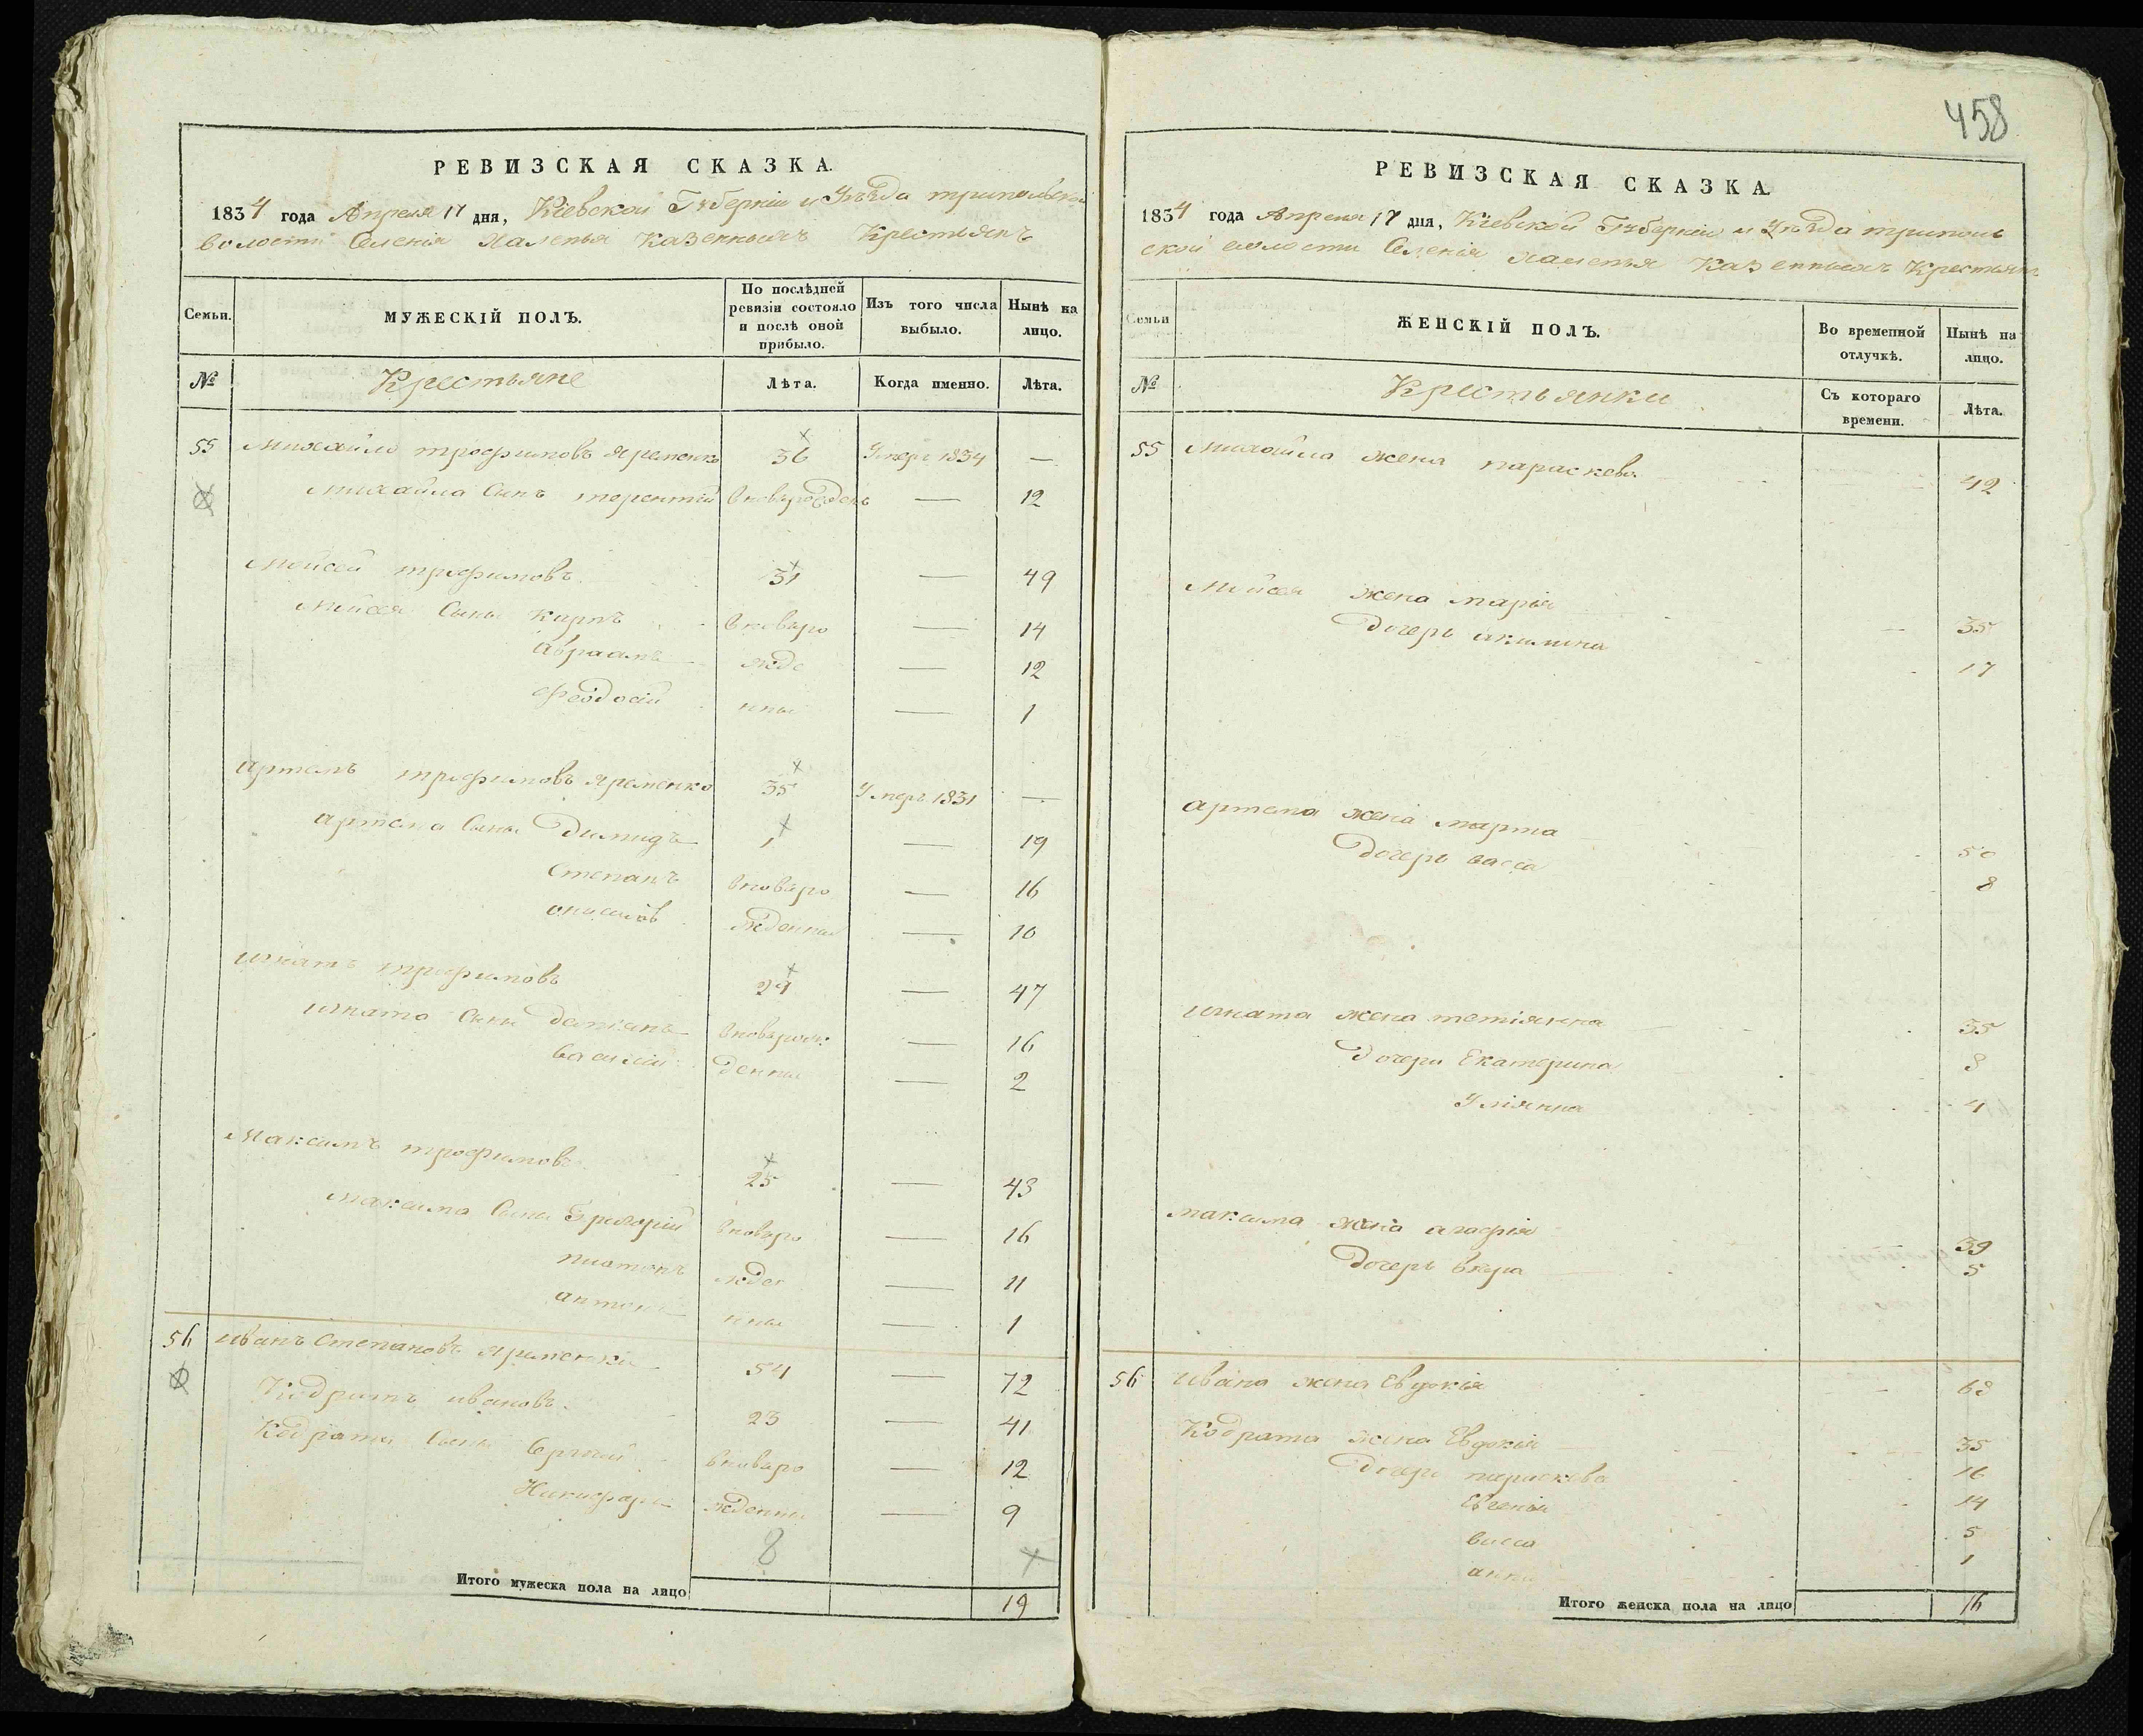 458
РЕВИЗСКАЯ СКАЗКА.
1834 года Апреля 17 дня, Кіевской Губерніи и Уѣзда трипольской
волости Селенія Халепья Казенныхъ Крестьянъ
Семьи.
МУЖЕСКІЙ ПОЛЪ.
По послѣдней ревизіи состояло и послѣ оной прибыло.
Изъ того числа выбыло.
Нынѣ на лицо.
№
Крестьяне
Лѣта.
Когда именно.
Лѣта.
55 Михайло трофимовъ Яременко 36 Умеръ 1834 —
Михайла Сынъ терентій вноворожденъ — 12
Мойсей трофимовъ 31 — 49
Мойсея Сыны Карпъ вноворо — 14
Авраамъ жде — 12
Феодосій нные — 1
Артемъ трофимовъ Яременко 35 Умеръ 1831 —
Артема Сыны Димидъ 1 — 19
Степанъ вноворо — 16
жденные — 10
Игнатъ трофимовъ 29 — 47
Игната Сыны Демянъ вноворож — 16
Василій денные — 2
Максимъ трофимовъ 25 — 43
Максима Сыны Григорій вноворо — 16
Платонъ жден — 11
Антоній ные — 1
56 Иванъ Степановъ Яременко 54 — 72
Кодратъ ивановъ 23 — 41
Кодрата Сыны Сергей вноворо — 12
Никифоръ жденные — 9
8
Итого мужеска пола на лицо 19
РЕВИЗСКАЯ СКАЗКА.
1834 года Апреля 17 дня, Кіевской Губерніи и Уѣзда триполь
ской волости Селенія Халепья Казенныхъ Крестьянъ
Семьи
ЖЕНСКІЙ ПОЛЪ.
Во временной отлучкѣ.
Нынѣ на лицо.
№
Крестьянки
Съ котораго времени.
Лѣта.
55 Михайла жена параскева 42
Мойсея жена марья 35
Дочерь акилина 17
Артема жена марта 50
Дочерь васса 8
Игната жена тетіянна 35
Дочери Екатерина 8
Уліянна 4
Максима жена агафія 39
Дочерь вѣра 5
56 Ивана жена Евдокія 68
Кодрата жена Евдокія 35
Дочери параскева 16
Евгенія 14
васса 5
анна 1
Итого женска пола на лицо 16